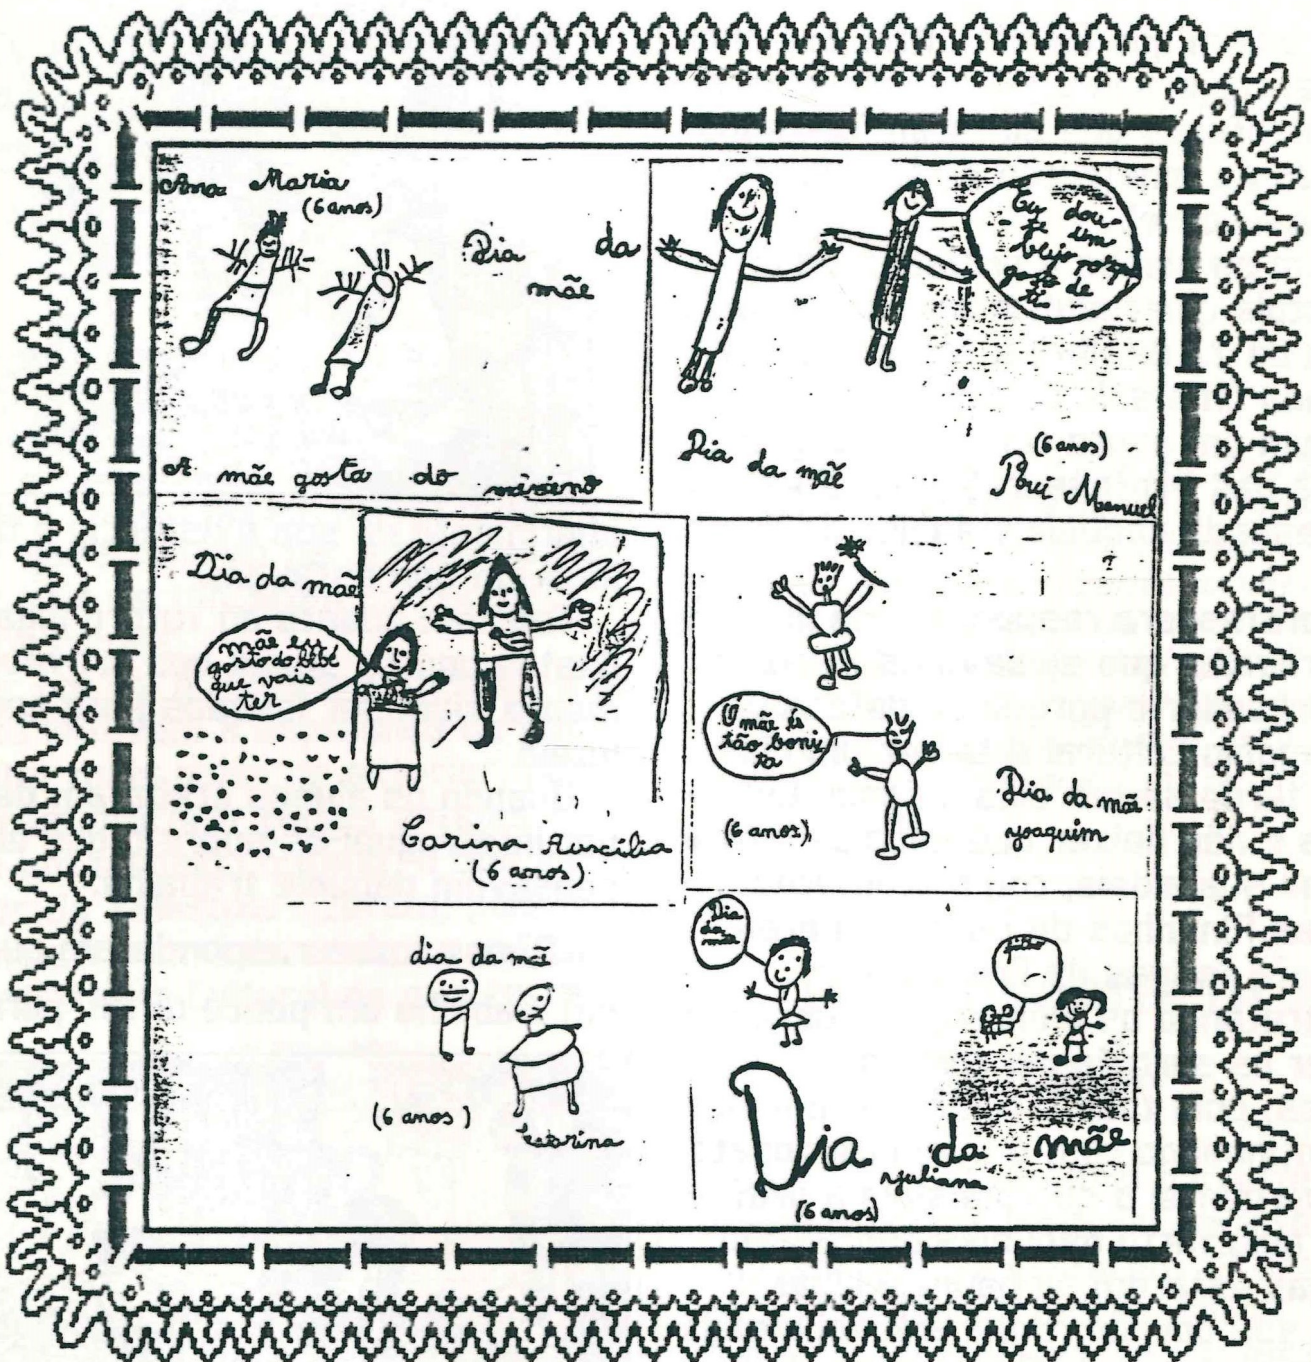 Ana Maria
(6 anos)
Dia da
mãe
A mãe gosta do menino
Eu dou
te um
beijo porque
gosto de
ti
Dia da mãe
(6 anos)
Rui Manuel
Dia da mãe
mãe eu
gosto do bebé
que vais
ter
Carina Auxcília
(6 anos)
O mãe és
tão boni
ta
(6 anos)
Dia da mãe
Joaquim
dia da mãe
(6 anos)
Catarina
Dia
da
mãe
filho
Dia da mãe
Juliana
(6 anos)